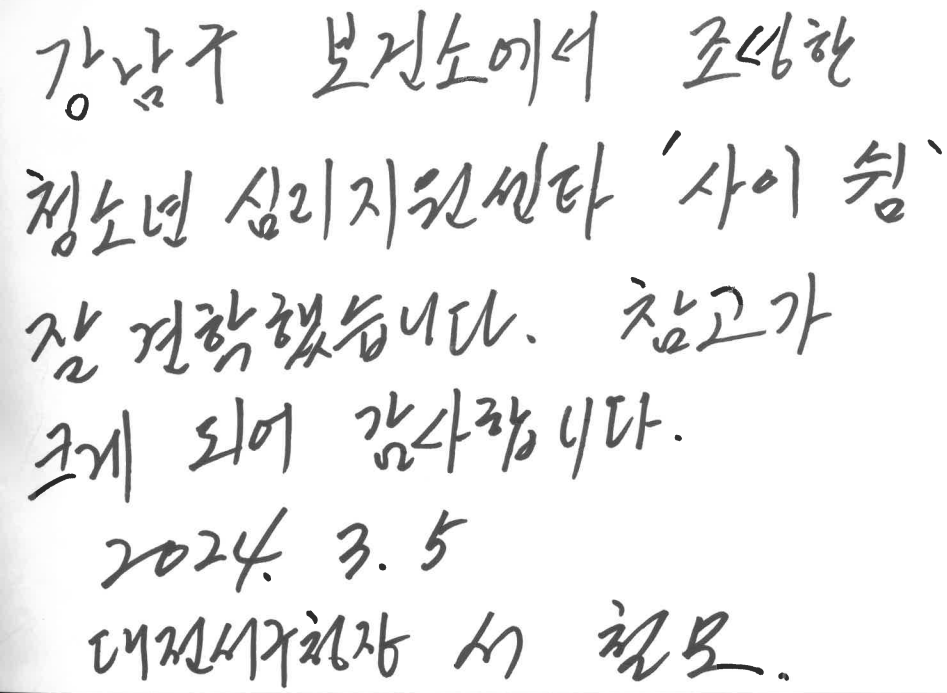 강남구 보건소에서 조성한
청소년 심리지원쎈타 '사이 쉼'
잘 견학했습니다. 참고가
크게 되어 감사합니다.
2024. 3. 5
대전서구청장 서 철모.